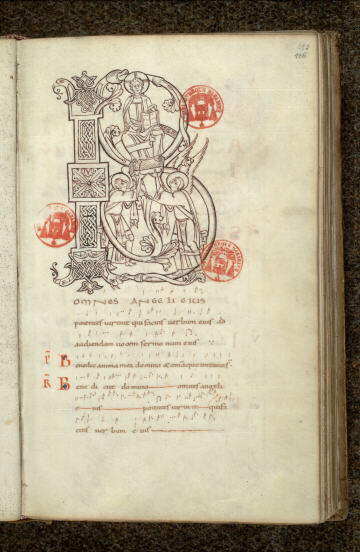 B
OMNES ANGELI EIUS
potentes virtute qui facitis verbum eius ad
audiendam vocem sermonum eius
B
enedic anima mea domino & omnia que interiora
B
ene di cite domino omnes angeli
e ius potentes virtute qui faci
tis ver bum e ius